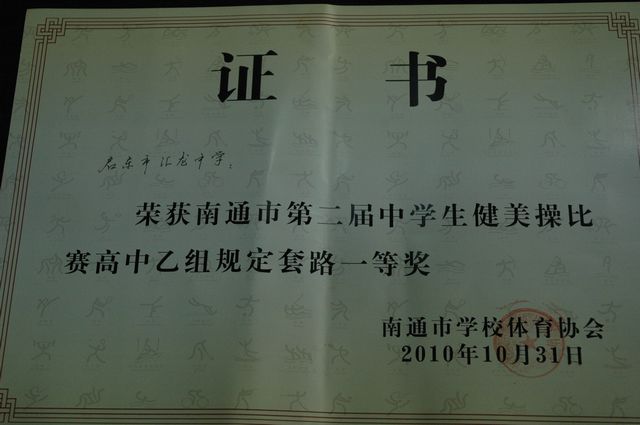 证书
启东市汇龙中学：
荣获南通市第二届中学生健美操比
赛高中乙组规定套路一等奖
南通市学校体育协会
2010年10月31日